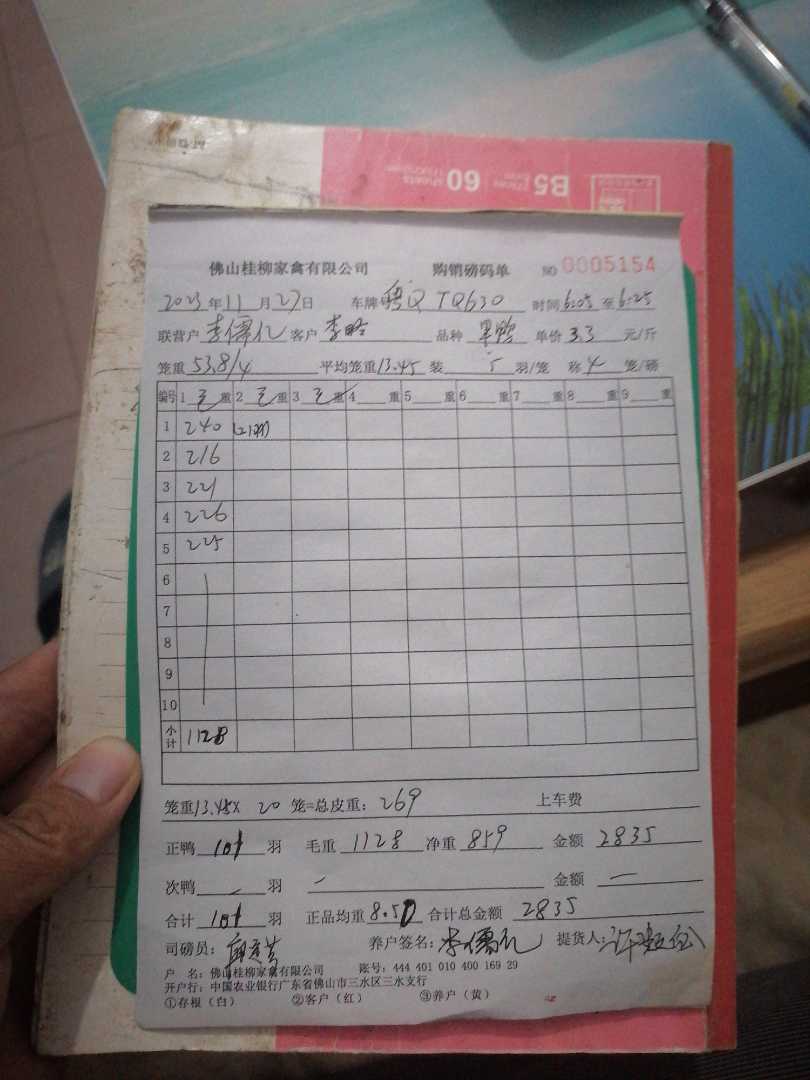 60 sheets
B5
佛山桂柳家禽有限公司 购销磅码单 NO 0005154
2023年11月27日 车牌号 粤Q TQ630 时间 6:05 至 6:25
联营户 李儒亿 客户 李 品种 单价 3.3 元/斤
笼重 53.8/4 平均笼重 13.45 装 5 羽/笼 称 4 笼/磅
编号 1 毛 重 2 毛 重 3 毛 重 4 重 5 重 6 重 7 重 8 重 9 重
1 240
2 216
3 221
4 226
5 225
6
7
8
9
10
小计 1128
笼重 13.45 X 20 笼=总皮重: 269 上车费
正鸭 101 羽 毛重 1128 净重 859 金额 2835
次鸭 — 羽 — 金额 —
合计 101 羽 正品均重 8.50 合计总金额 2835
司磅员: 养户签名: 李儒亿 提货人: 许
户 名: 佛山桂柳家禽有限公司 账号: 444 401 010 400 169 29
开户行: 中国农业银行广东省佛山市三水区三水支行
①存根(白) ②客户(红) ③养户(黄)